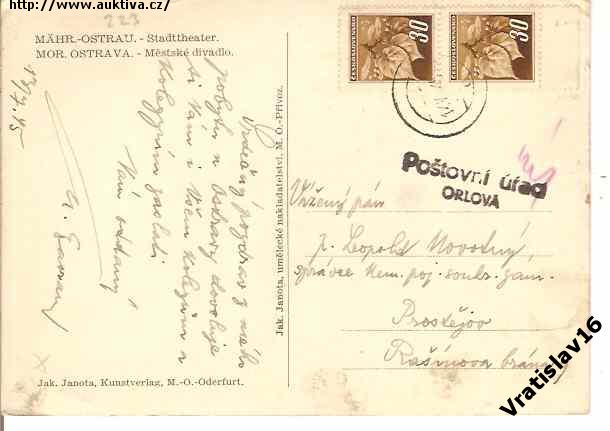 http://www.auktiva.cz/
223
MÄHR.-OSTRAU. - Stadttheater.
MOR. OSTRAVA. - Městské divadlo.
13/7.45
Srdečný pozdrav z mého
pobytu v Ostravy dovoluje
si Vám i všem kolegům a
kolegyním zaslati
Vám oddaný
Jak. Janota, umělecké nakladatelství, M. O.-Přívoz.
ČESKOSLOVENSKO
30
ČESKOSLOVENSKO
30
Poštovní úřad
ORLOVÁ
Vážený pán
p. Leopold Novotný,
správce Nem. poj. soukr. zam.
Prostějov
Rašínova brána
Jak. Janota, Kunstverlag, M.-O.-Oderfurt.
Vratislav16